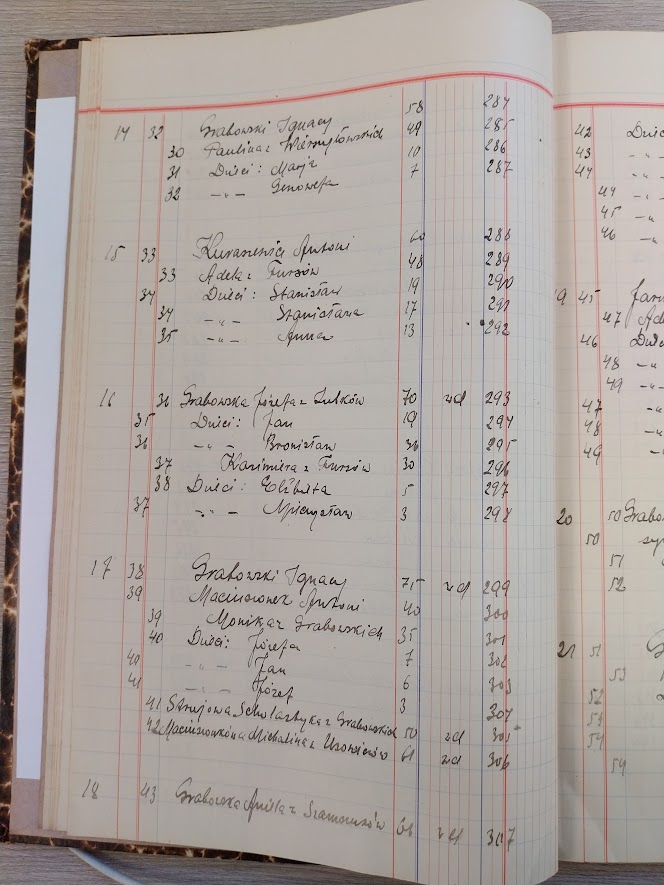 14 32 Grabowski Ignacy 58 284
30 Paulina z 49 285
31 Dzieci: Marja 10 286
32 -„- Genowefa 7 287
15 33 Kuraszewicz Antoni 60 288
33 Adela z Fursów 48 289
34 Dzieci: Stanisław 19 290
34 -„- Stanisława 17 291
35 -„- Anna 13 292
16 36 Grabowska Józefa z Zubków 70 wd 293
35 Dzieci: Jan 19 294
36 -„- Bronisław 36 295
37 Kazimiera z Fursów 30 296
38 Dzieci: Elżbieta 5 297
37 -„- Mieczysław 3 298
17 38 Grabowski Ignacy 75 wd 299
39 Maciusionek Antoni 40 300
39 Monika z Grabowskich 35 301
40 Dzieci: Józefa 7 302
40 -„- Jan 6 303
41 -„- Józef 3 304
41 Scholastyka z Grabowskich 50 wd 305
42 Michalina z 61 wd 306
18 43 Grabowska Aniela z 61 wd 307
42 Dzieci
43 -„-
44 -„-
44 -„-
45 -„
46 -„
19 45
47
46 Dzieci
48 -„
49 -„
47 -„
48 -„
49 -„
20 50
50
51
52
21 51
53
52
53
54
54